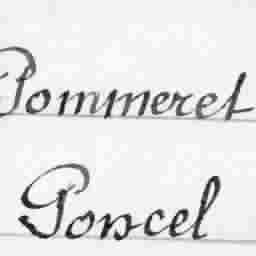 Pommeret
Poncel